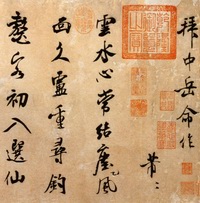 拜中岳命作
芾
雲水心常結塵風
面久盧重尋釣
鼇客初入選仙